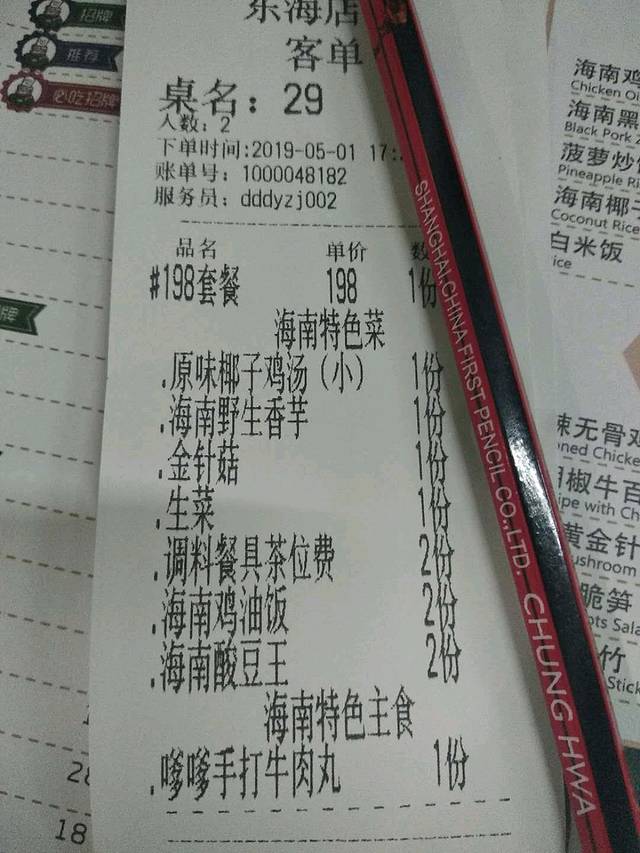 东海店
客单
桌名：29
人数：2
下单时间:2019-05-01 17:
账单号：1000048182
服务员：dddyzj002
品名 单价 数
#198套餐 198 1份
海南特色菜
.原味椰子鸡汤（小） 1份
.海南野生香芋 1份
.金针菇 1份
.生菜 1份
.调料餐具茶位费 2份
.海南鸡油饭 2份
.海南酸豆王 2份
海南特色主食
.嗲嗲手打牛肉丸 1份
SHANGHAI.CHINA FIRST PENCIL CO.,LTD. CHUNG HWA
招牌
推荐
必吃招牌
牌
28
18
海南鸡
Chicken Oi
海南黑
Black Pork
菠萝炒饭
Pineapple Ri
海南椰子
Coconut Rice
白米饭
ice
辣无骨鸡
ned Chicke
胡椒牛百
ipe with Ch
黄金针
ushroom
脆笋
ots Sala
竹
Stick